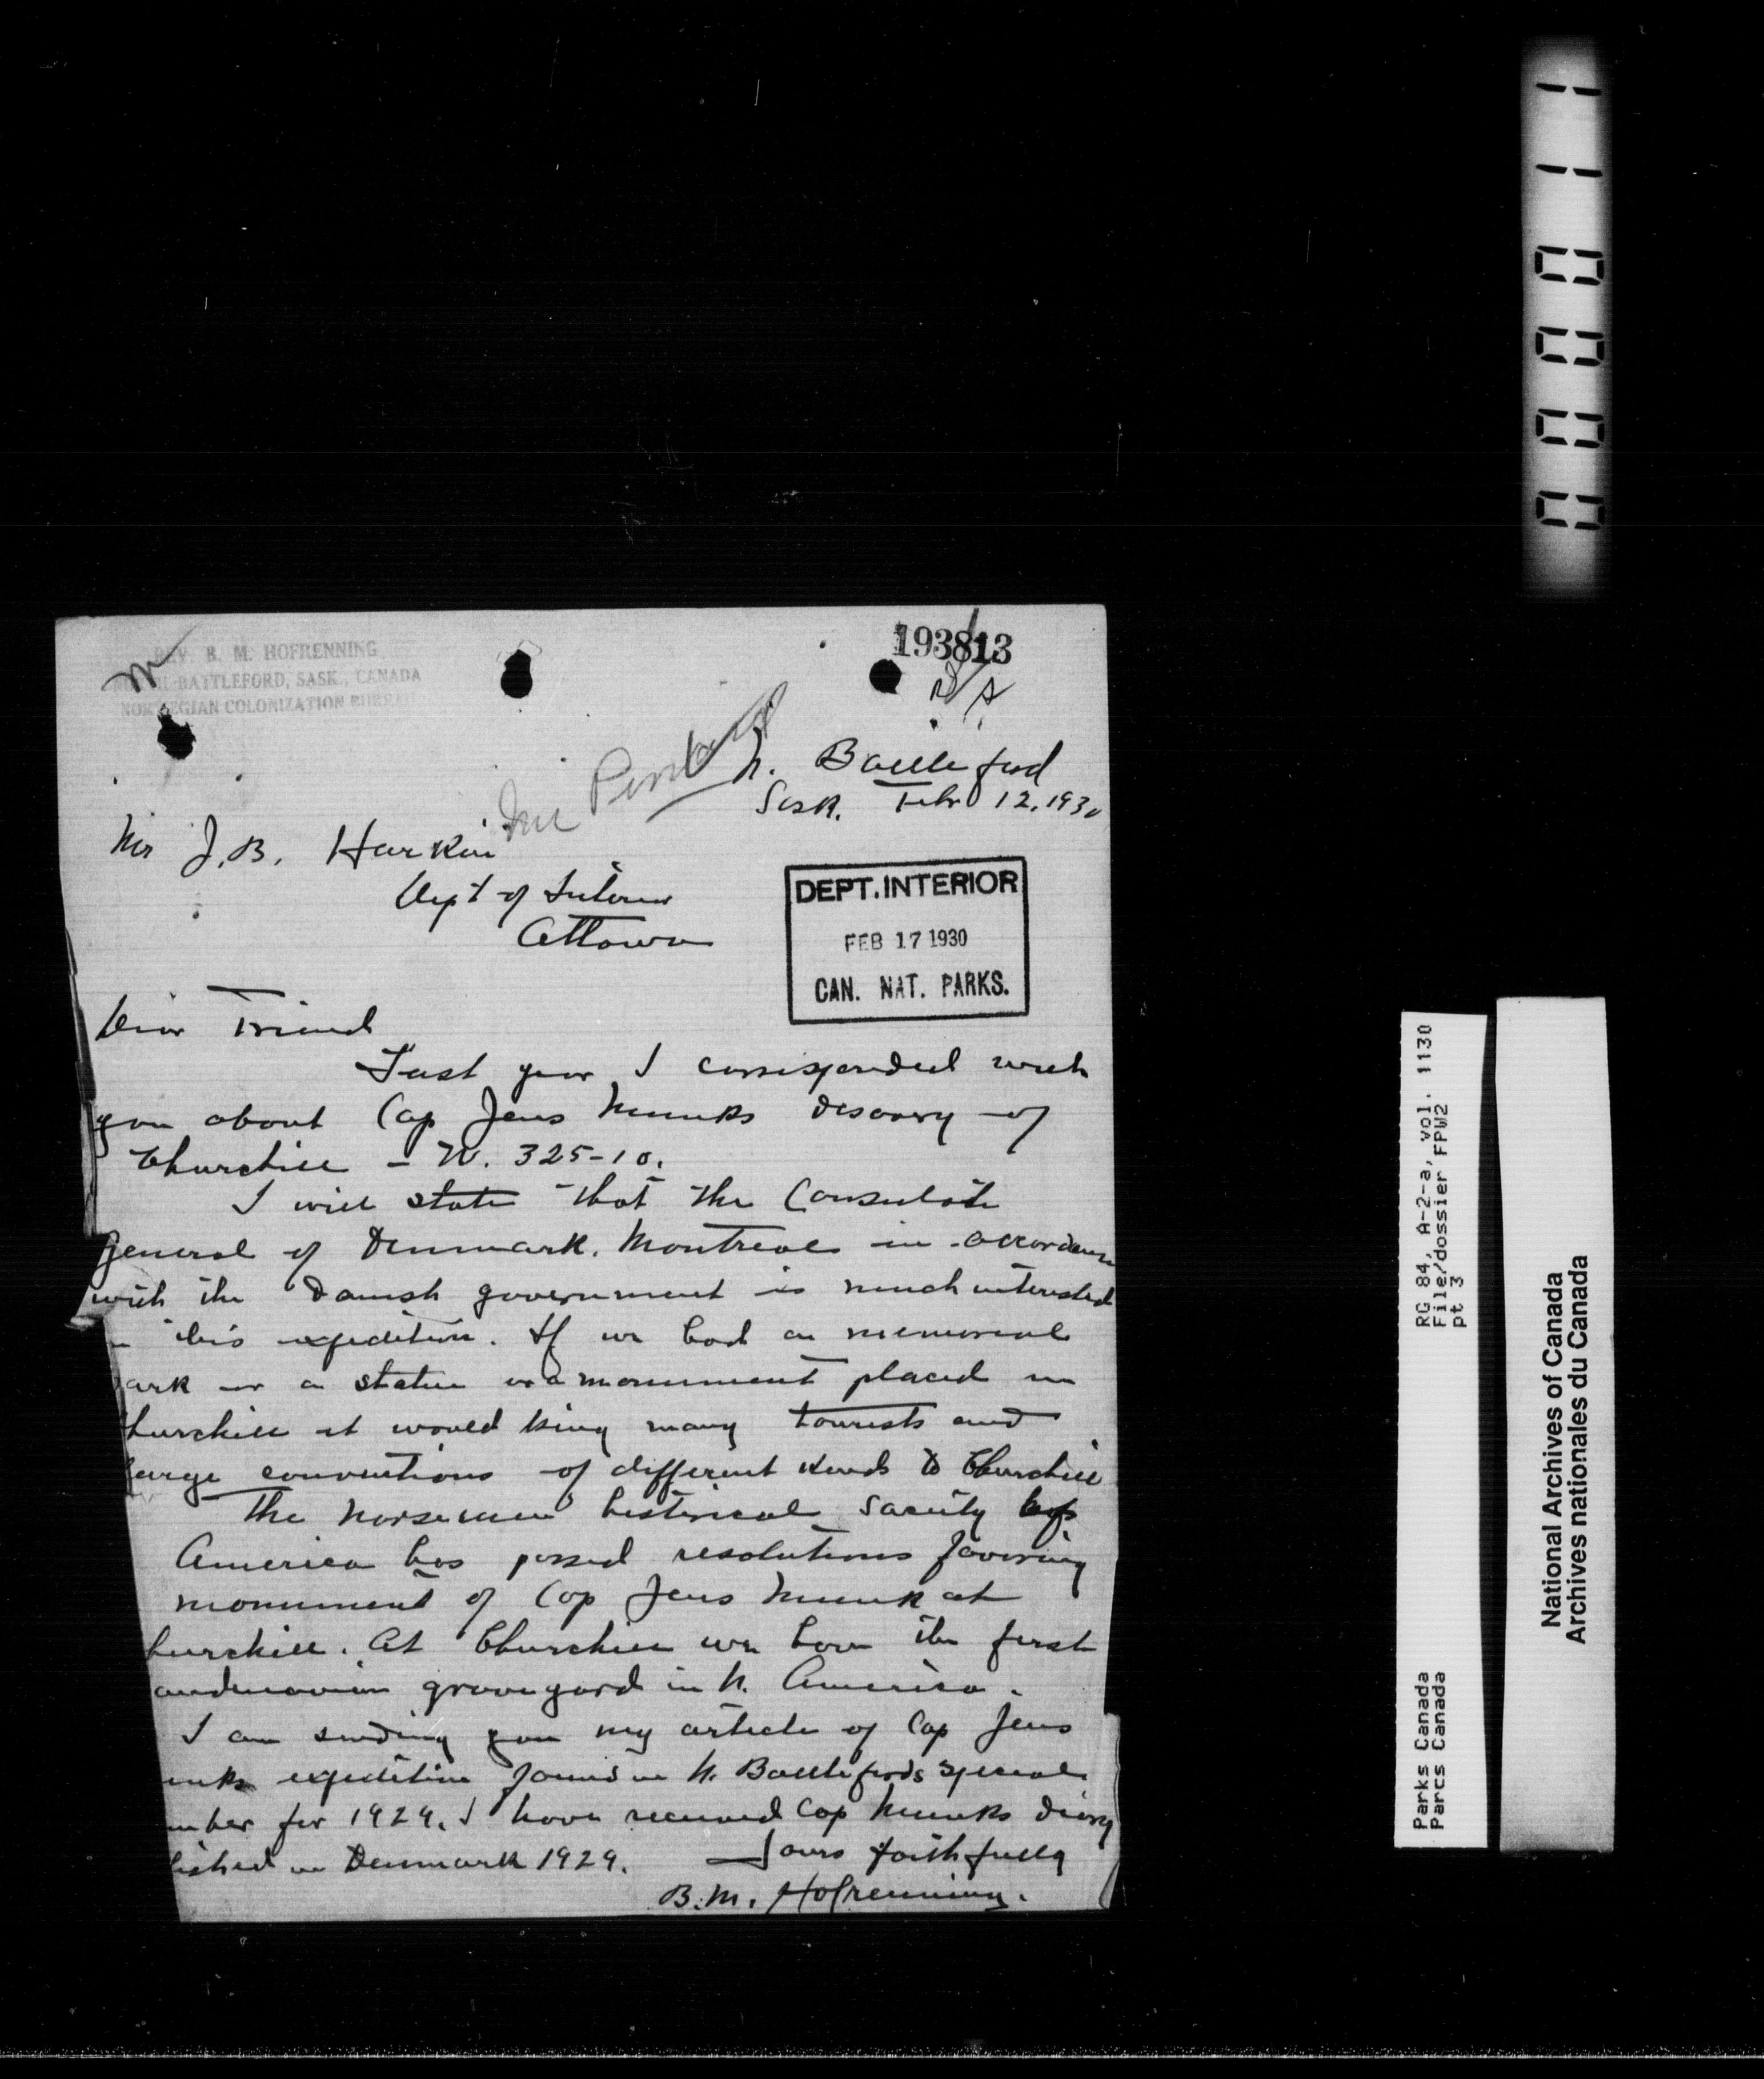 193813
REV. B. M. HOFRENNING
NORTH BATTLEFORD, SASK., CANADA
NORWEGIAN COLONIZATION BUREAU
N. Battleford
Sask. Feb 12, 1930
Mr J.B. Harkin
Dept of Interior
Ottawa
DEPT. INTERIOR
FEB 17 1930
CAN. NAT. PARKS.
Dear Friend
Last year I corresponded with
you about Cap Jens Munks discovry of
Churchill - W. 325-10.
I will state that the Consulate
General of Denmark. Montreal in accordance
with the Danish government is much interested
in this expedition. If we had a memorial
ark or a statue or a monument placed in
hurchill it would bring many tourists and
large conventions of different kinds to Churchill
The Norsemen historical society of
America has passed resolutions favoring
monument of Cap Jens Munk at
hurchill. At Churchill we have the first
andinavian graveyard in N. America.
I am sending you my article of Cap Jens
unks expedition found in N. Battlefords special
umber for 1929. I have received Cap Munks diary
lished in Denmark 1929. Yours faithfully
B.M. Hofrenning.
RG 84, A-2-a, vol. 1130
File/dossier FPW2
pt 3
Parks Canada
Parcs Canada
National Archives of Canada
Archives nationales du Canada